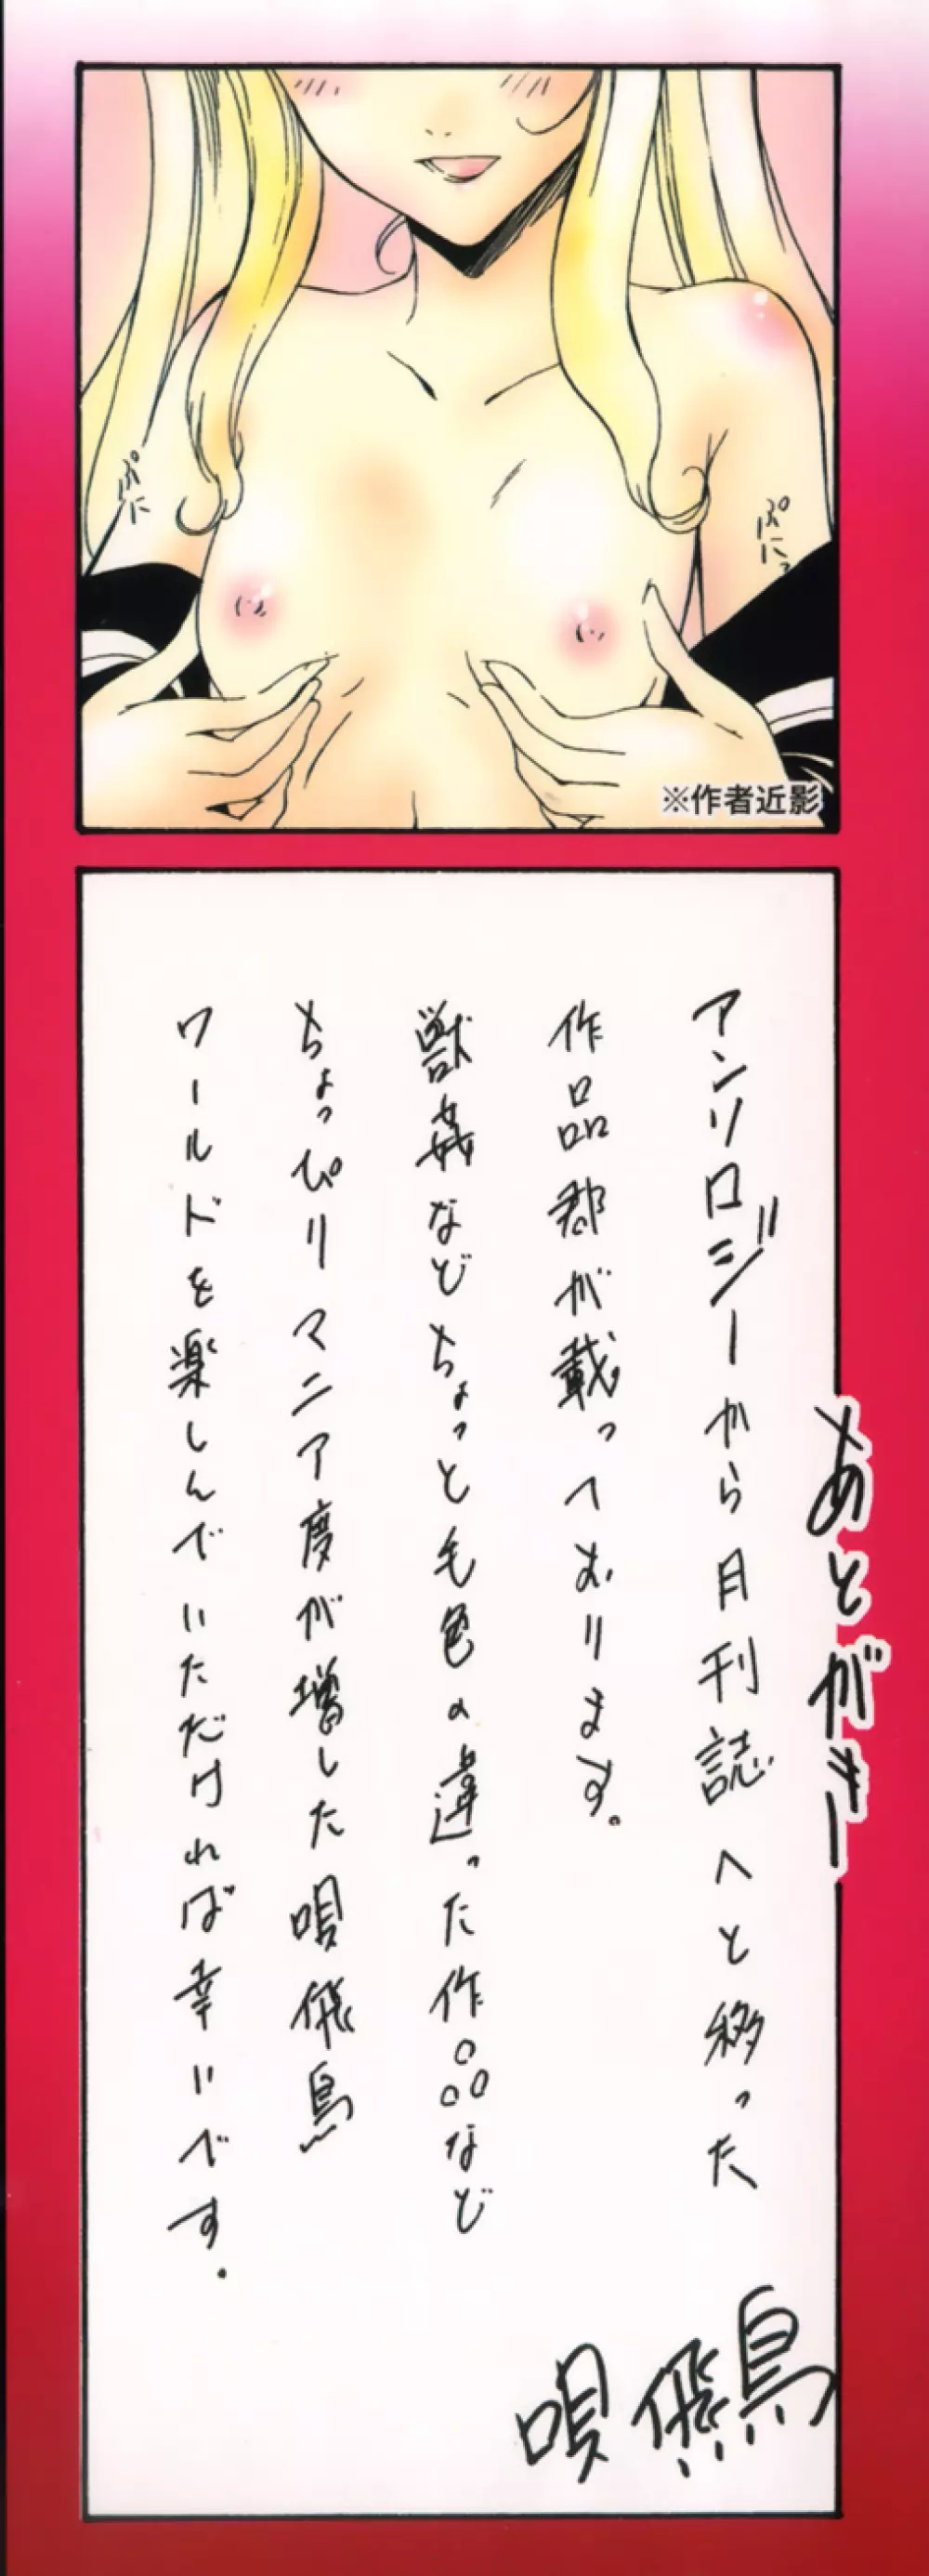 ぷに
ぷにっ
※作者近影
あとがきー
アンソロジーから月刊誌へと移った
作品郡が載っております。
獣姦などちょっと毛色の違った作品など
ちょっぴりマニア度が増した唄飛鳥
ワールドを楽しんでいただければ幸いです。
唄飛鳥